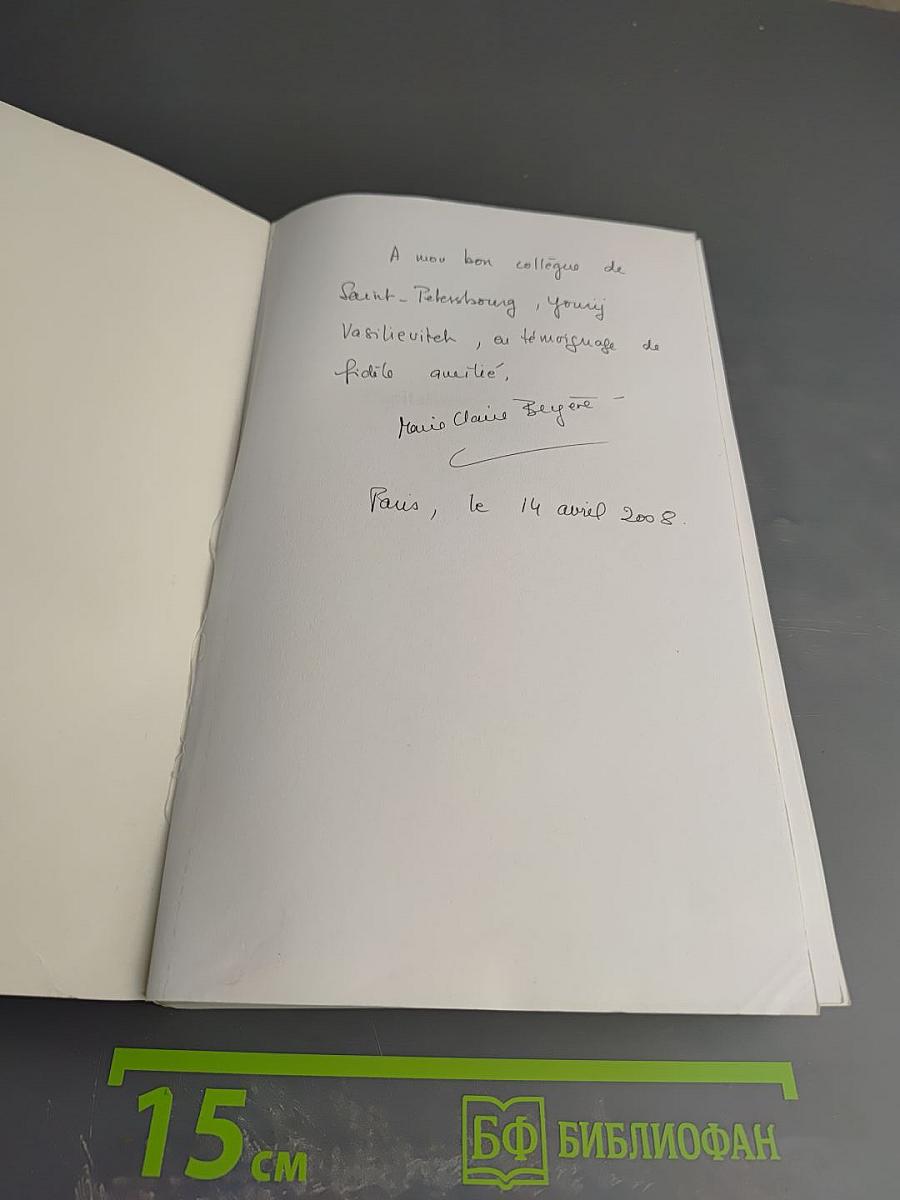 A mon bon collègue de
Saint-Petersbourg, Yourij
Vasilievitch, en témoignage de
fidèle amitié.
Marie Claire Bergère
Paris, le 14 avril 2008.
15 см
БФ БИБЛИОФАН